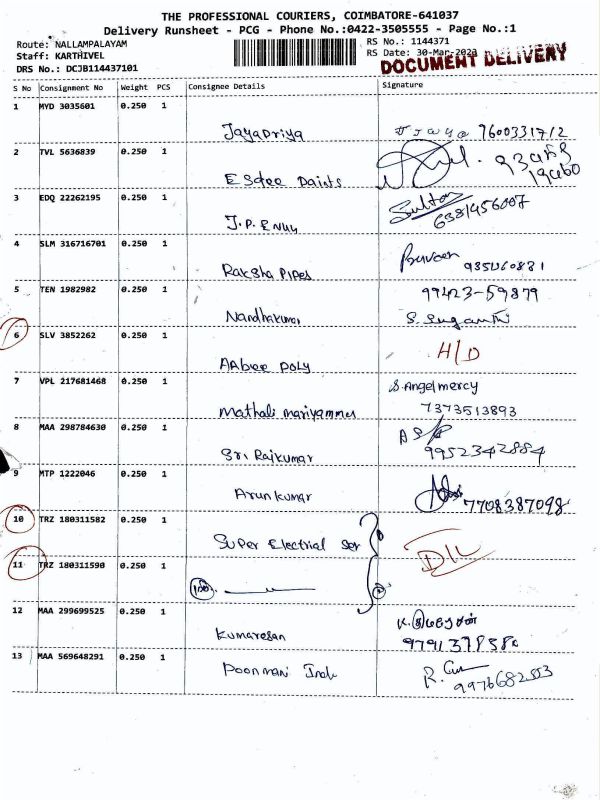 THE PROFESSIONAL COURIERS, COIMBATORE-641037
Delivery Runsheet - PCG - Phone No.:0422-3505555 - Page No.:1
Route: NALLAMPALAYAM
RS No.: 1144371
Staff: KARTHIVEL
RS Date: 30-Mar-2023
DRS No.: DCJB114437101
DOCUMENT DELIVERY
S No Consignment No Weight PCS Consignee Details Signature
1 MYD 3035601 0.250 1
Jayapriya 7600331712
2 TVL 5636839 0.250 1
Esdee Paints
3 EDQ 22262195 0.250 1
J.P. Sulton 6381456007
4 SLM 316716701 0.250 1
Raksha Pipes
5 TEN 1982982 0.250 1 99423-59879
Nandhakumar S. Suganthi
6 SLV 3852262 0.250 1
AAbee POLY H/D
7 VPL 217681468 0.250 1 S.Angelmercy
Mathali mariyammes 7373513893
8 MAA 298784630 0.250 1
Sri Rajkumar 9952342884
9 MTP 1222046 0.250 1
Arunkumar 7708387098
10 TRZ 180311582 0.250 1
Super Electrial Ser D/L
11 TRZ 180311590 0.250 1
12 MAA 299699525 0.250 1
Kumaresan
13 MAA 569648291 0.250 1
Poonmani 9976682553